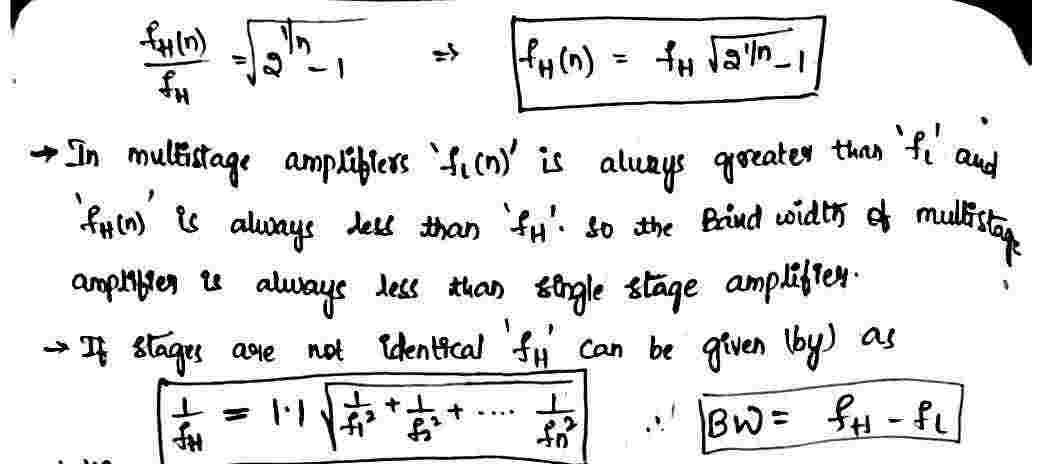 fH(n)/fH = √(2^(1/n) - 1) ⇒ fH(n) = fH √(2^(1/n) - 1)
→ In multistage amplifiers 'fL(n)' is always greater than 'fL' and
'fH(n)' is always less than 'fH'. so the Band width of multistage
amplifier is always less than single stage amplifier.
→ If stages are not identical 'fH' can be given (by) as
1/fH = 1.1 √(1/f1² + 1/f2² + .... 1/fn²) ∴ BW = fH - fL